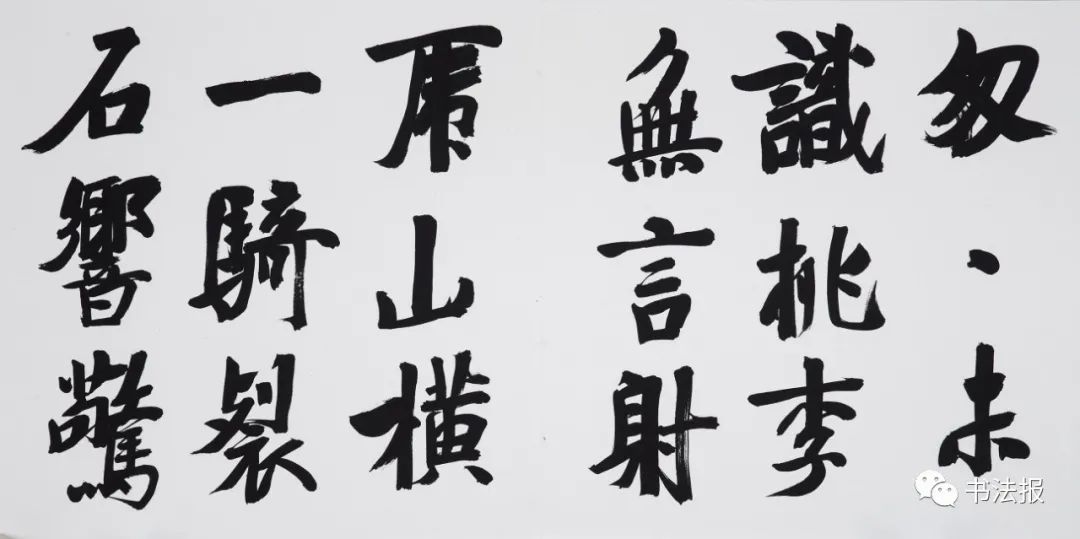 匆·未
識桃李
無言射
虎山横
一騎裂
石響驚
书法报